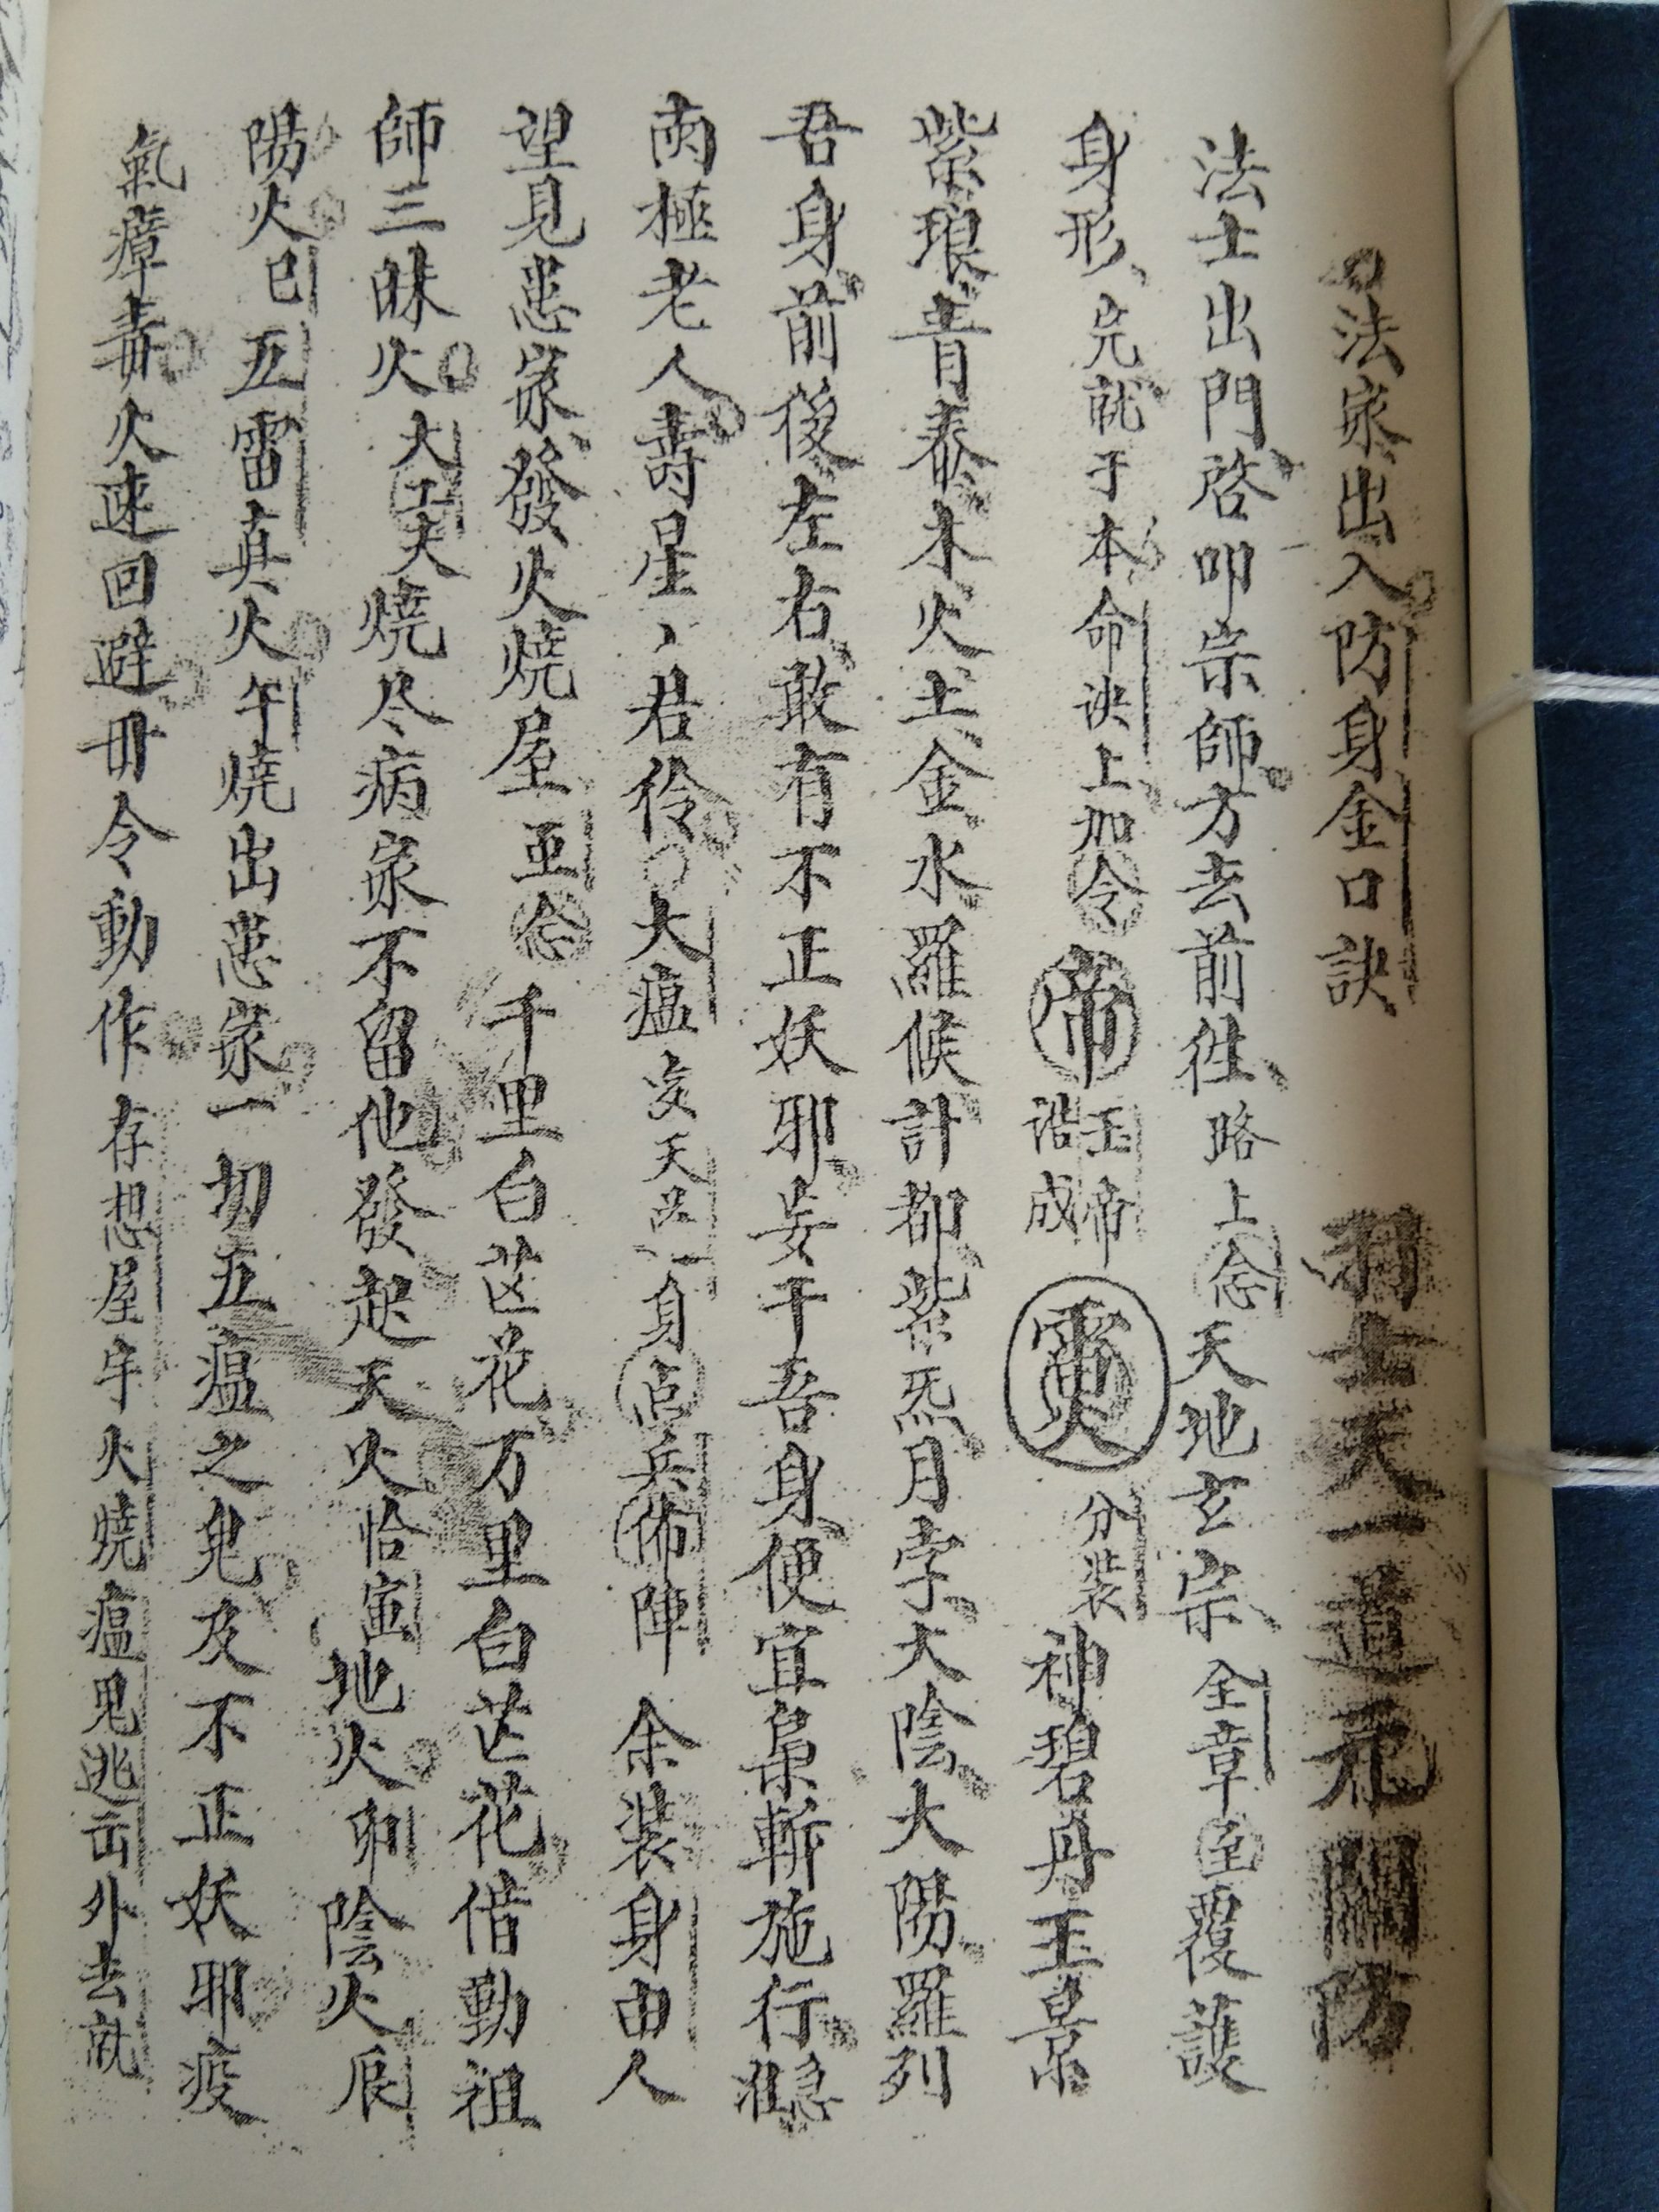 法家出入防身金口訣
法士出門啓叩宗師方去前往路上念天地玄宗全章至覆護
身形完就于本命訣上加令帝玉帝誥成分装神碧丹王景
紫琅青泰木火土金水羅候計都紫炁月孛大陰大陽羅列
吾身前後左右敢有不正妖邪妄干吾身便宜枭斬施行
南極老人壽星丶君伶大瘟天身兵佈陣余装身由人
望見患家發火燒屋亚念千里白芒花万里白芒花偕動祖
師三昧火大夫燒尽病家不留他發起天火恰寅地火卯陰火辰
陽火巳五雷真火午燒出患家一切五瘟之鬼及不正妖邪疫
氣瘴毒火速回避毋令動作存想屋宇火燒瘟鬼逃出外去就